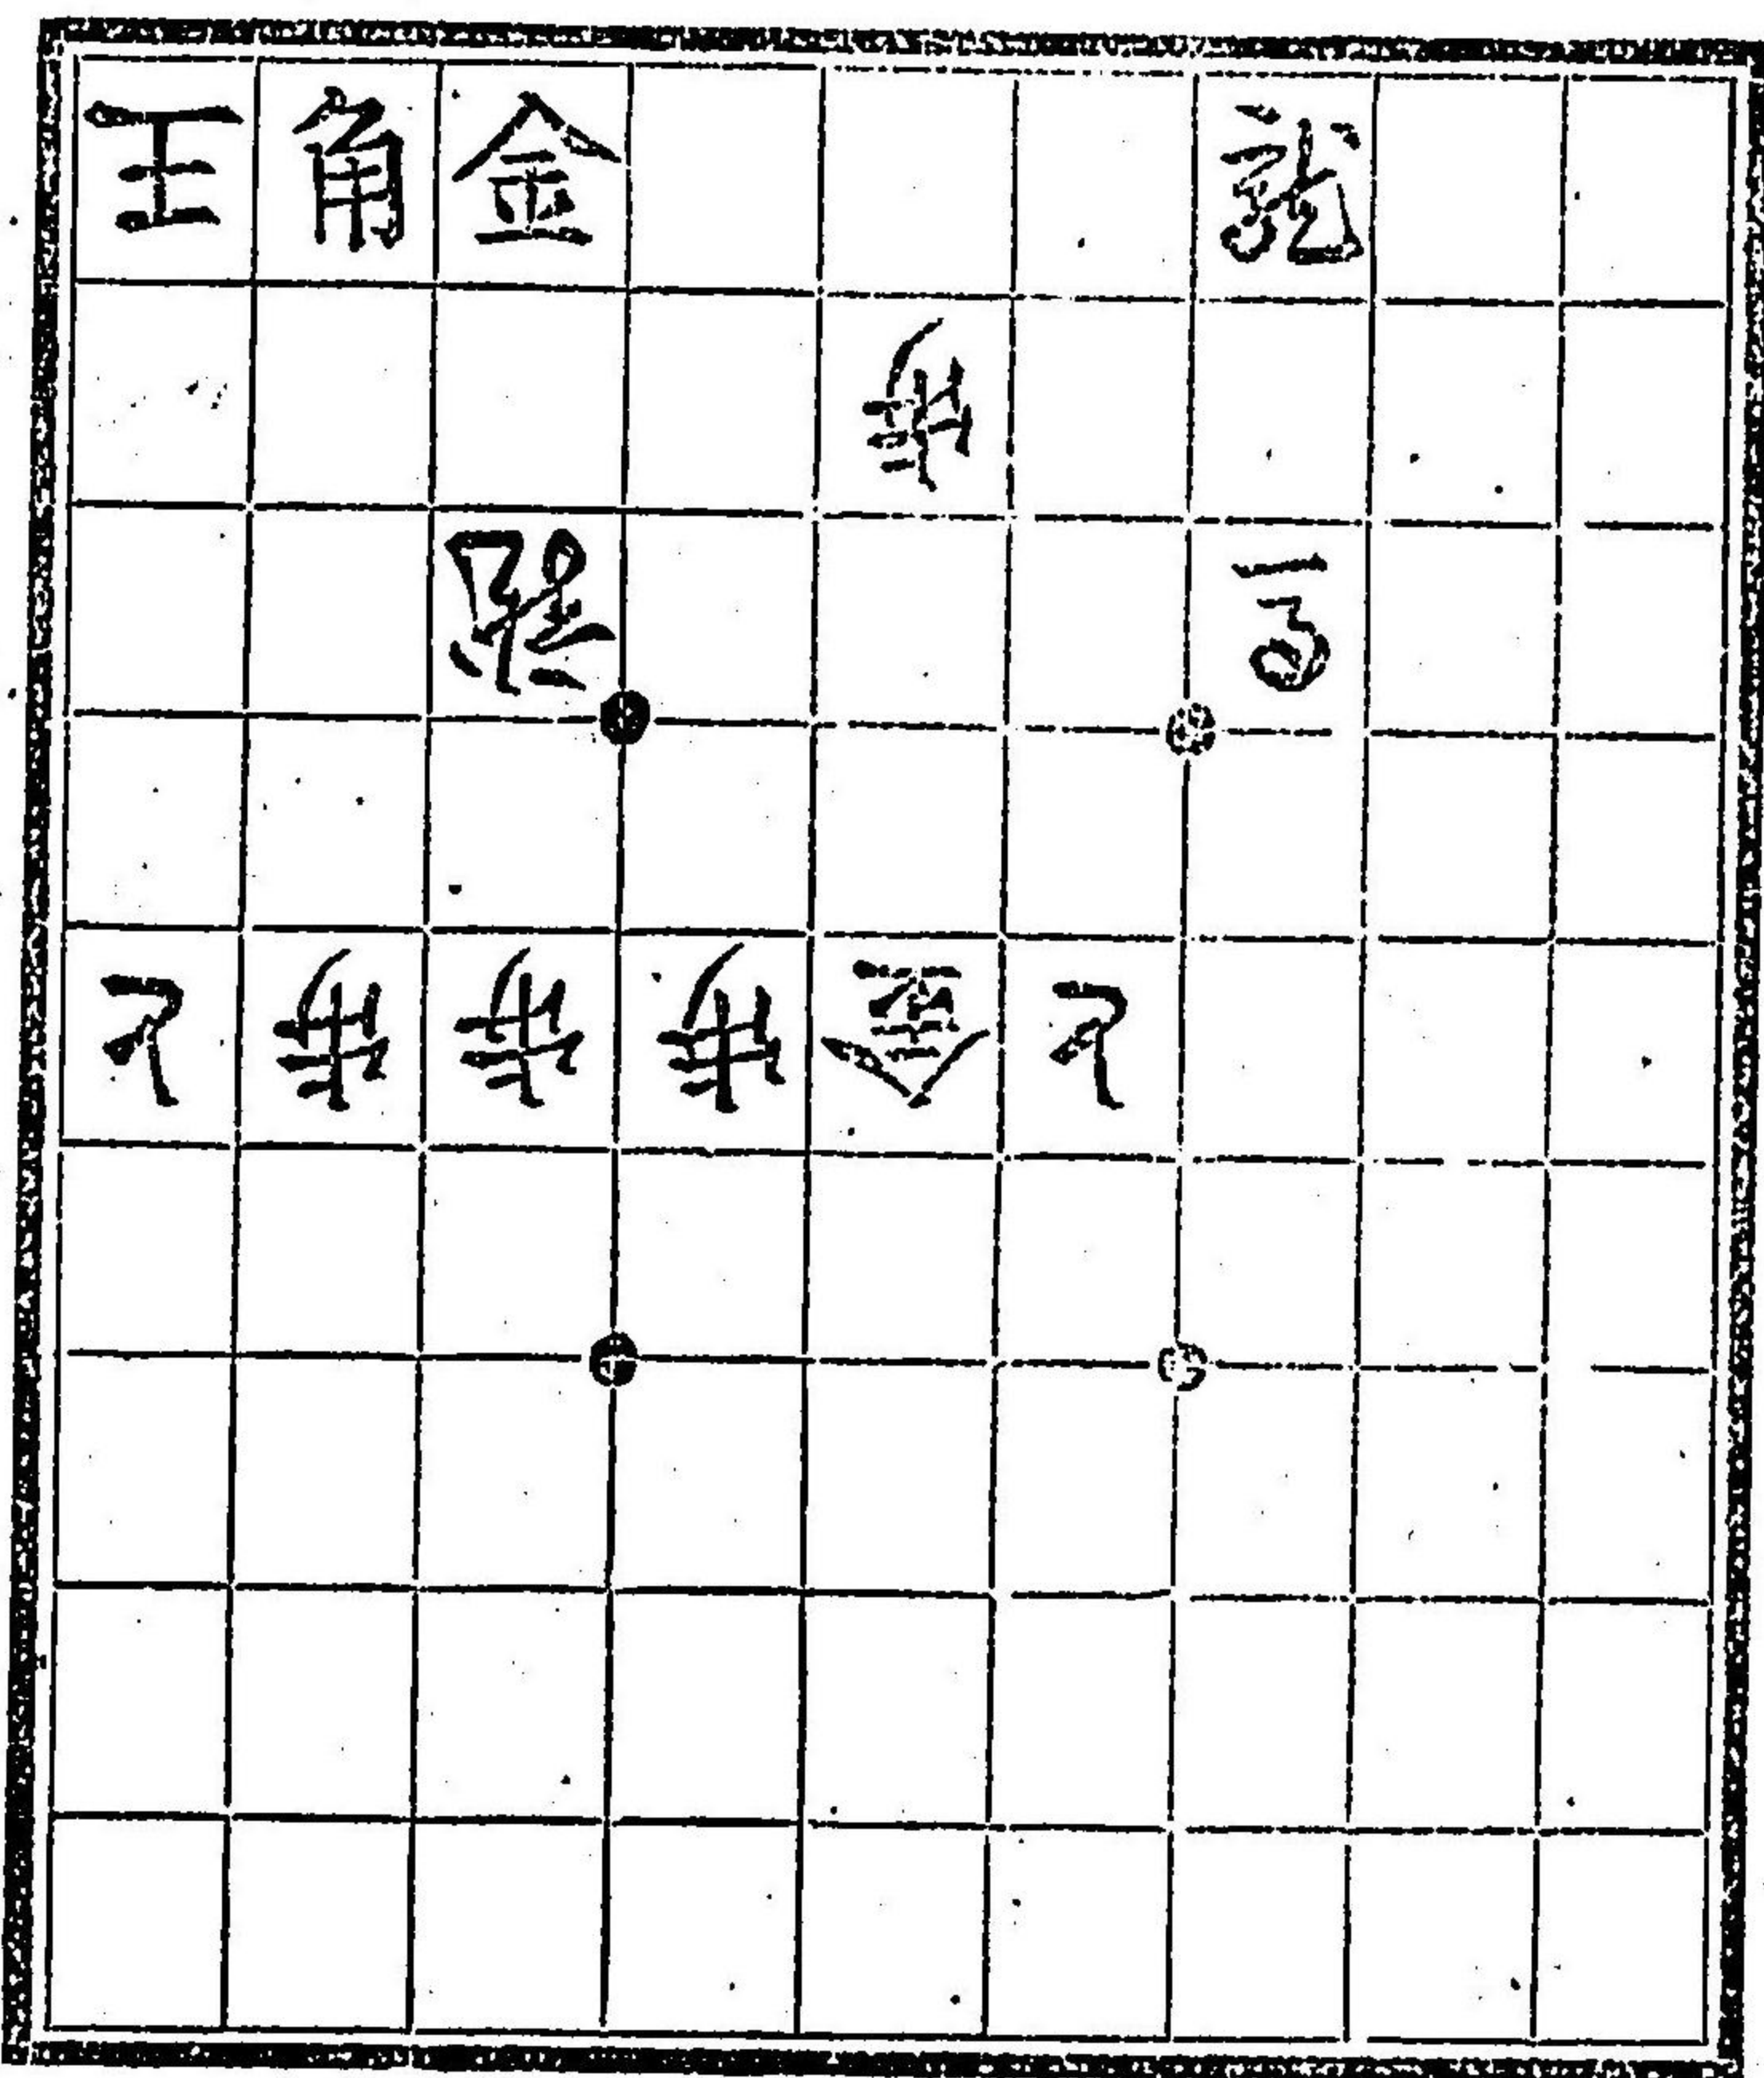 王角金龍
歩
馬
と歩歩歩金と